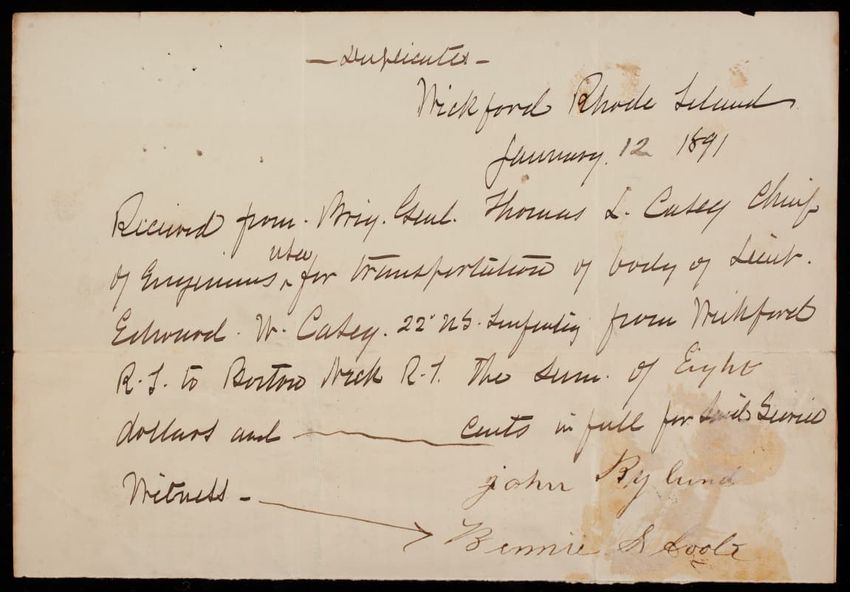 - Duplicate -
Wickford Rhode Island
January 12 1891
Received from Brig. Genl. Thomas L. Casey Chief
of Engineers USA for transportation of body of Lieut.
Edward W. Casey. 22" US. Infantry from Wickford
R.I. to Boston Neck R.I. the sum of Eight
dollars and ——— cents in full for said Service
john Rylund
Witness -
Bennie S